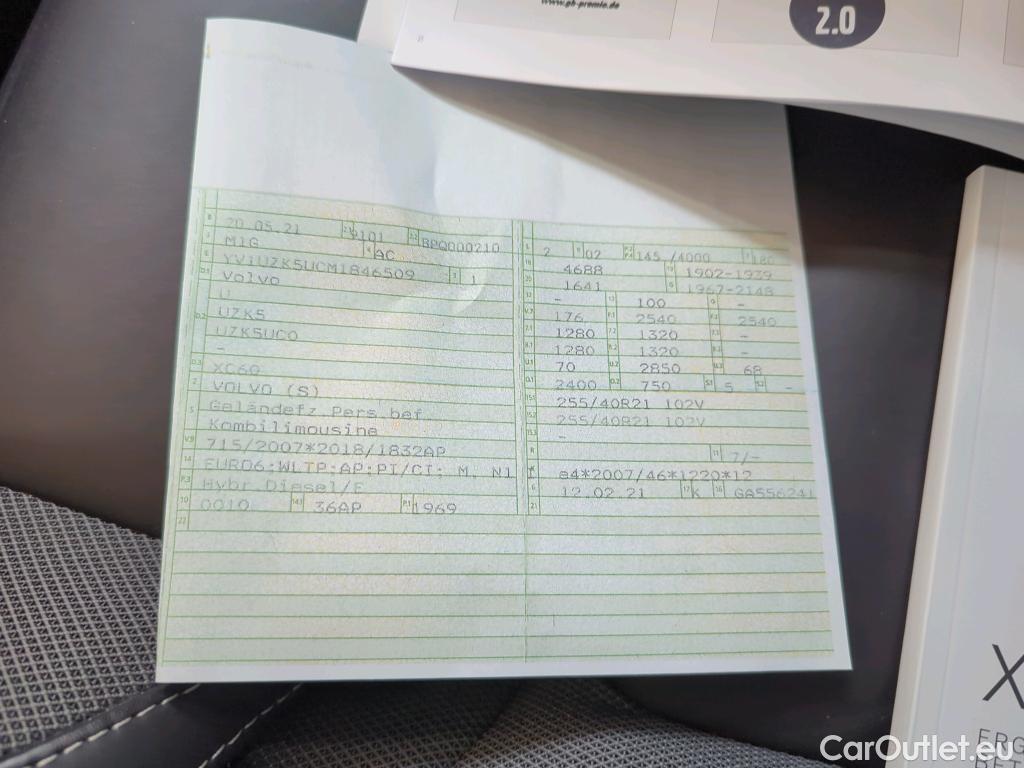 www.gh-premio.de
2.0
20.05.21 9101 BPQ000210
M1G AC
YV1UZK5UCM1846509 1
Volvo
U
UZK5
UZK5UC0
-
XC60
VOLVO (S)
Geländefz.Pers.bef.
Kombilimousine
715/2007*2018/1832AP
EURO6;WLTP;AP;PI/CI; M, N1
Hybr.Diesel/E
0010 36AP 1969
2 02 145 /4000 180
4688 1902-1939
1641 1967-2148
- 100 -
176 2540 2540
1280 1320 -
1280 1320 -
70 2850 68
2400 750 5 -
255/40R21 102V
255/40R21 102V
-
7/-
e4*2007/46*1220*12
12.02.21 K GA556241
X
ERG
BET
CarOutlet.eu